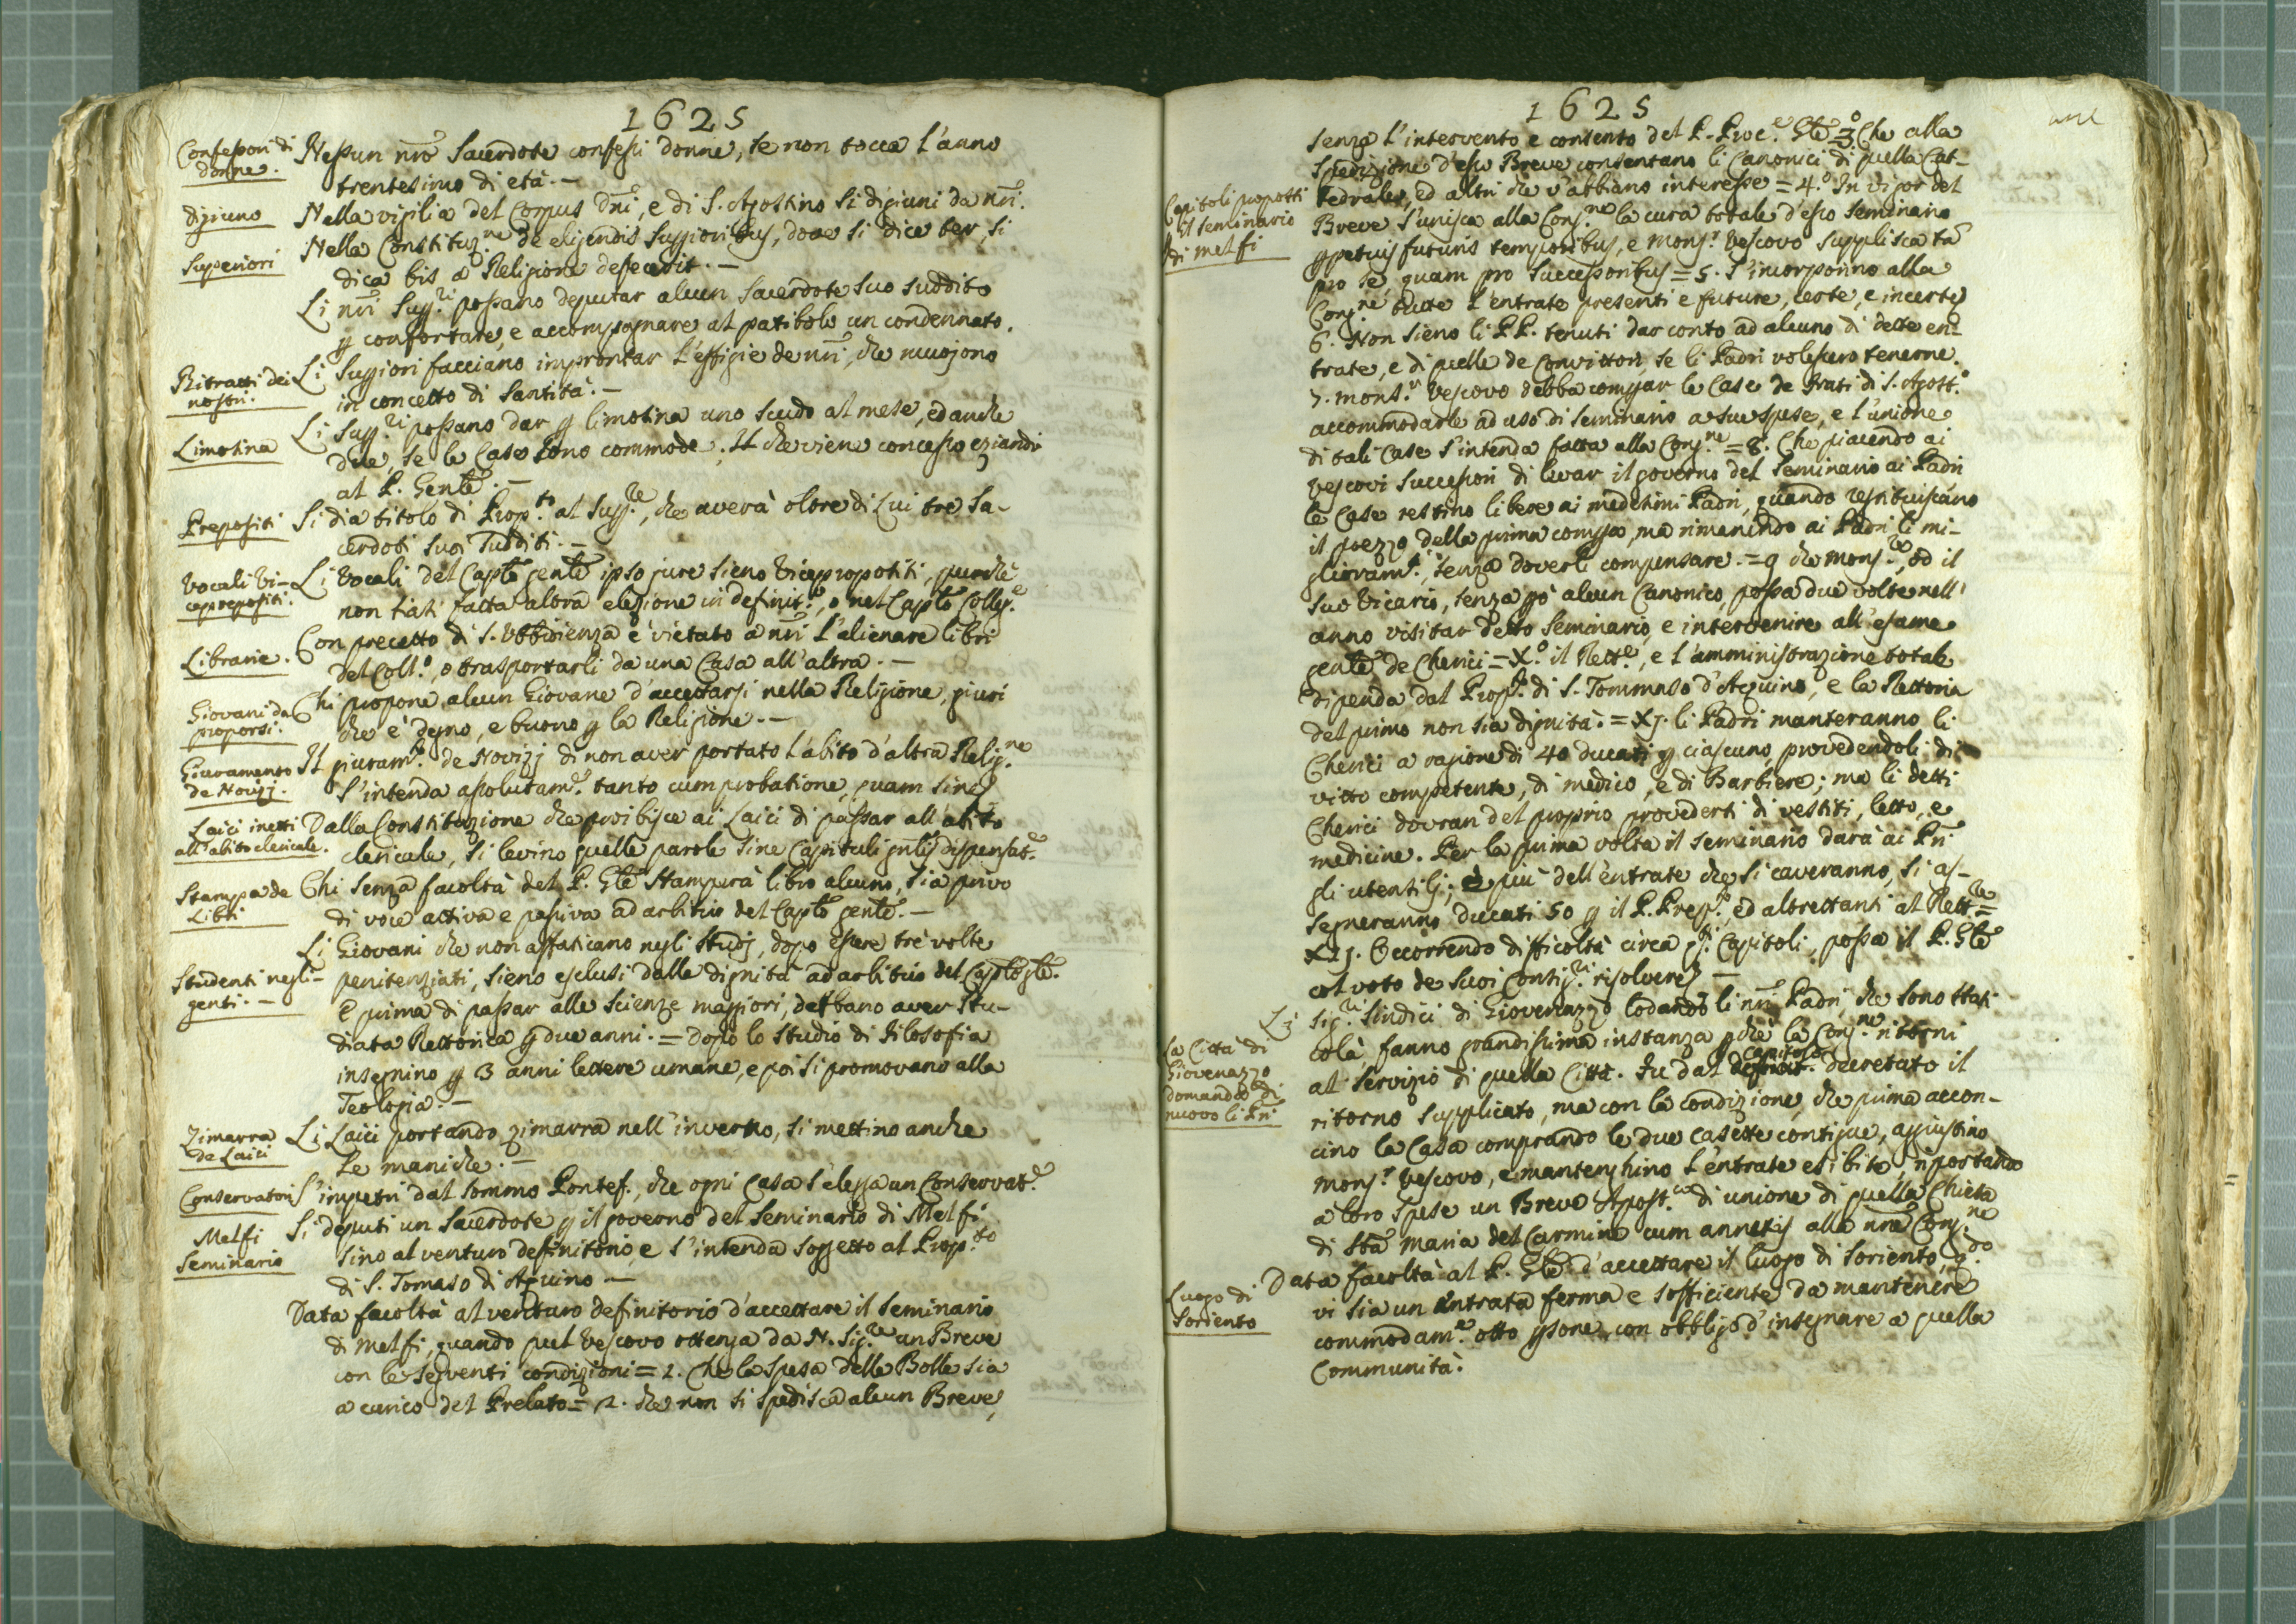 1625
Confessori di
donne.
Nessun nro Sacerdote confessi donne, se non tocca l'anno
trentesimo di età. —
digiuno
Nella vigilia del Corpus Dni, e di S. Agostino si digiuni da nri.
Superiori
Nella Constituz.ne de eligendis Superioribus, dove si dice ter, si
dica bis a Religione defecerit. —
Li nri Supp.ri possano deputar alcun Sacerdote suo suddito
p confortare, e accompagnare al patibolo un condennato.
Ritratti dei
nostri.
Li Superiori facciano improntar l'effigie de nri, che muojono
in concetto di Santità. —
Limosina
Li Supp.ri possano dar p limosina uno scudo al mese, ed anche
due, se le Case sono commode. Il che viene concesso eziandio
al P. Gente. —
Prepositi
Si dia titolo di Prop.to al Supp.re, che averà oltre di Lui tre Sa-
cerdoti suoi sudditi. —
Vocali Vi-
ceprepositi.
Li Vocali del Capto gente ipso jure sieno Vicepropositi, purchè
non siasi fatta altra elezione in definit.e, o nel Capto Colleg.e
Librarie.
Con precetto di S. Ubbidienza è vietato a nri l'alienare libri
del Coll.o, o trasportarli da una Casa all'altra. —
Giovani da
proporsi.
Chi propone alcun Giovane d'accettarsi nella Religione, giuri
che è degno, e buono p la Religione. —
Giuramento
de Novizj.
Il giuram.to de Novizj di non aver portato l'abito d'altra Relig.ne
s'intenda assolutam.e tanto cum probatione, quam sine
Laici inetti
all'abito clericale.
Dalla Constituzione che proibisce ai Laici di passar all'abito
clericale, si levino quelle parole sine Capituli gnlis dispensat.e
Stampa de
Libri
Chi senza facoltà del P. Gle stamperà libro alcuno, sia privo
di voce attiva e passiva ad arbitrio del Capto gente. —
Studenti negli-
genti. —
Li Giovani che non affaticano negli studj, dopo essere tre volte
penitenziati, sieno esclusi dalle dignità ad arbitrio del Capto gle.
E prima di passar alle scienze maggiori, debbano aver stu-
diata Rettorica p due anni. = Dopo lo studio di Filosofia
insegnino p 3 anni lettere umane, e poi si promovano alla
Teologia. —
Zimarra
de Laici
Li Laici portando zimarra nell'inverno, si mettino anche
le maniche. —
Conservatori
S'impetri dal Sommo Pontef., che ogni Casa s'elegga un Conservat.e
Melfi
Seminario
Si deputi un Sacerdote p il governo del Seminario di Melfi
sino al venturo definitorio, e s'intenda soggetto al Prop.to
di S. Tomaso di Aquino —
Data facoltà al venturo definitorio d'accettare il Seminario
di Melfi, quando quel Vescovo ottenga da N. Sig.re un Breve
con le seguenti condizioni = 1. Che la spesa delle Bolle sia
a carico del Prelato = 2. che non si spedisca alcun Breve,
1625
senza l'intervento e consento del P. Proc.e Gle = 3.o Che alla
spedizione d'esso Breve consentano li Canonici di quella Cat-
Capitoli proposti
pel seminario
di melfi
tedrale, ed altri che v'abbiano interesse = 4.o In vigor del
Breve s'unisca alla Cong.ne la cura totale d'esso Seminario
ppetuis futuris temporibus, e Mons.r Vescovo supplisca tã
pro se, quam pro Successoribus = 5. S'incorporino alla
Cong.ne tutte l'entrate presenti e future, certe, e incerte
6. Non sieno li PP. tenuti dar conto ad alcuno di dette en-
trate, e di quelle de Convittori, se li Padri volessero tenerne.
7. Mons.r Vescovo debba comprar le Case de Frati di S. Agost.o
accommodarle ad uso di Seminario a sue spese, e l'unione
di tali Case s'intenda fatta alla Cong.ne = 8. Che piacendo ai
Vescovi Successori di levar il governo del Seminario ai Padri
le Case restino libere ai medesimi Padri, quando restituiscano
il prezzo della prima compra, ma rimanendo ai Padri li mi-
glioram.ti, senza doverli compensare. = 9 che Mons.re, od il
suo Vicario, senza pò alcun Canonico, possa due volte nell'
anno visitar detto Seminario, e intervenire all'esame
gente de Cherici = X.o il Rett.e, e l'amministrazione totale
dipenda dal Prop.to di S. Tommaso d'Aquino, e la Rettoria
del primo non sia dignità. = XJ. li Padri manteranno li
Cherici a ragione di 40 ducati p ciascuno, provedendoli di
vitto competente, di medico, e di Barbiere; ma li detti
Cherici dovran del proprio provedersi di vestiti, letto, e
medicine. Per la prima volta il Seminario darà ai Pri
gli utensilj; e più dell'entrate che si caveranno, si as-
segneranno ducati 50 p il P. Prep.to, ed altrettanti al Rett.re =
XIJ. Occorrendo difficoltà circa q.ti Capitoli, possa il P. Gle
col voto de suoi Consig.ri risolvere —
La Città di
Giovenazzo
domanda di
nuovo li Pri
Li Sig.ri Sindici di Giovenazzo lodando li nri Padri, che sono stati
colà, fanno grandissima instanza pchè la Cong.ne ritorni
al servizio di quella Città. Fu dal definit. capitolo decretato il
ritorno supplicato, ma con la condizione, che prima accon-
cino la Casa comprando le due casette contigue, aggiustino
Mons.r Vescovo, e mantenghino l'entrate esibite, riportando
a loro spese un Breve Apost.co di unione di quella Chiesa
di Sta Maria del Carmine cum annexis alla nra Cong.ne
Luogo di
Soriento
Data facoltà al P. Gle d'accettare il luogo di Soriento, q.do
vi sia un entrata ferma e sofficiente da mantenere
commodam.e otto psone, con obbligo d'insegnare a quella
Communità.